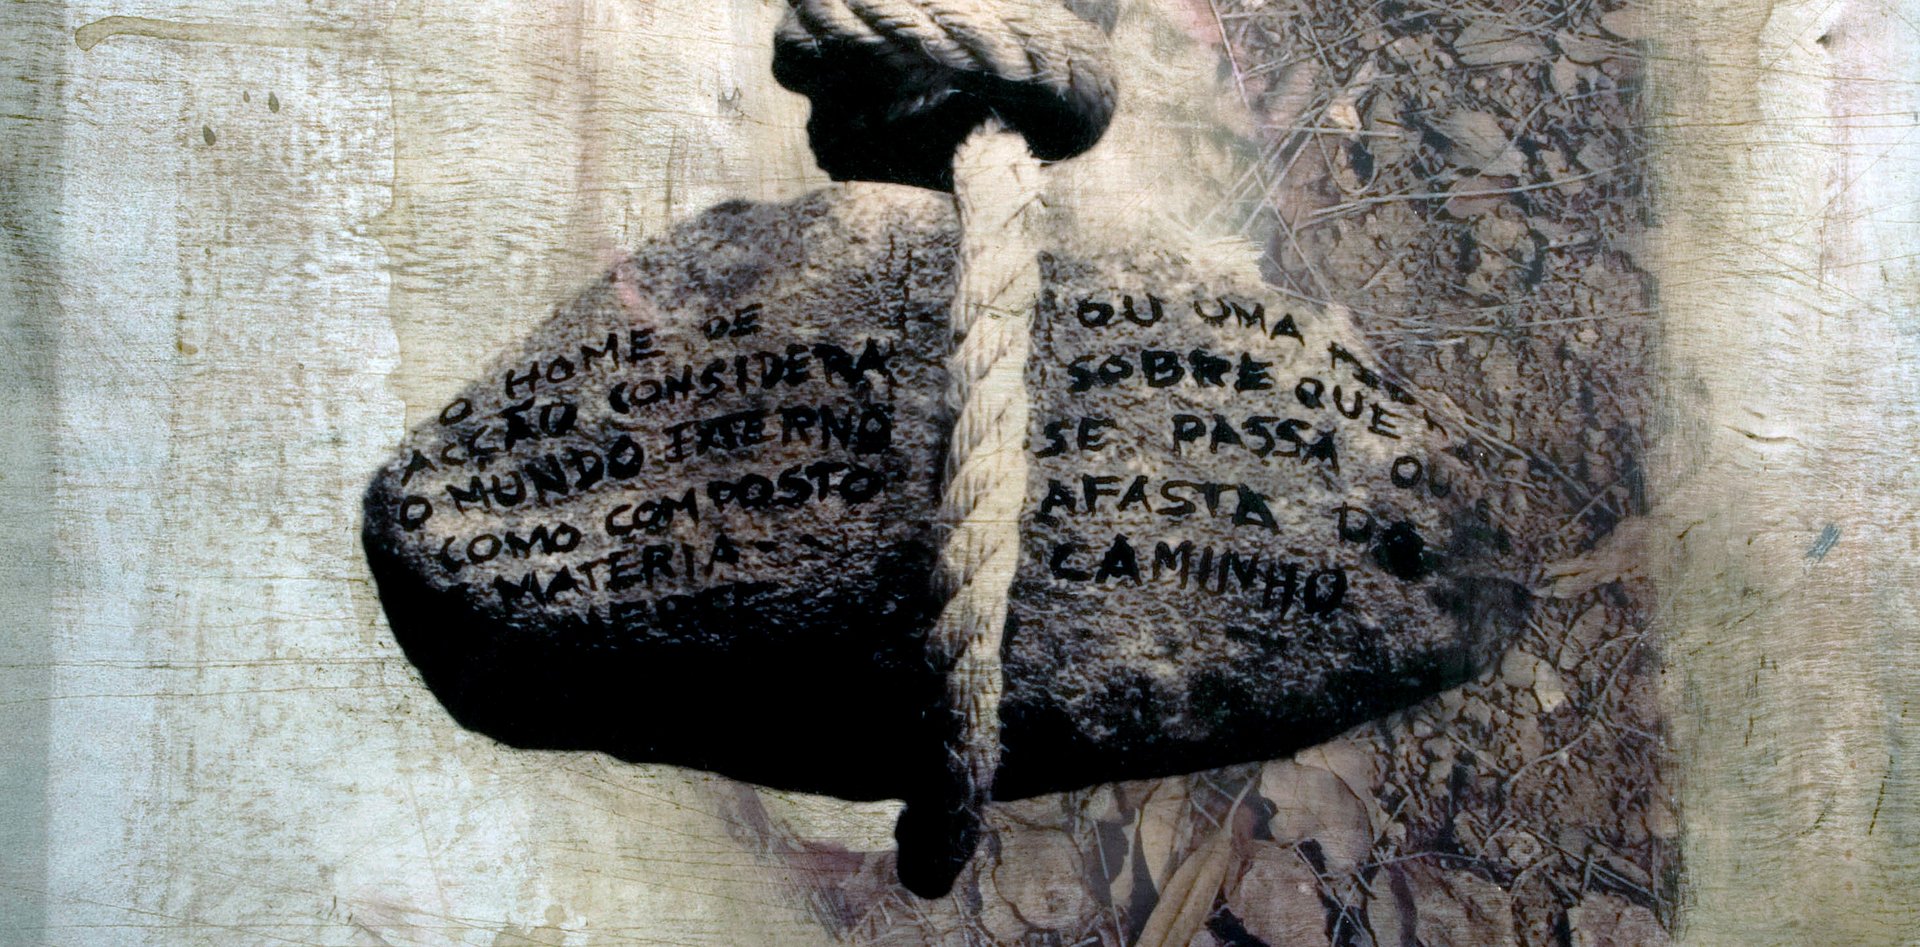 O HOME DE
ACÇÃO CONSIDERA
O MUNDO EXTERNO
COMO COMPOSTO
MATERIA
OU UMA
SOBRE QUE
SE PASSA OU
AFASTA DO
CAMINHO